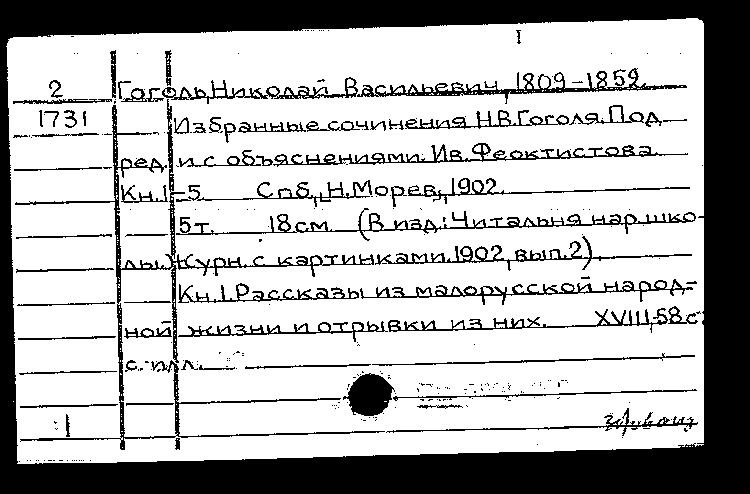 I
2 Гоголь, Николай Васильевич, 1809-1852.
1731 Избранные сочинения Н.В.Гоголя. Под
ред. и с объяснениями. Ив. Феоктистова.
Кн.1-5. Спб., Н.Морев, 1902.
5т. 18см (В изд.: Читальня нар.шко-
лы.) Журн. с картинками. 1902, вып.2).
Кн.1. Рассказы из малорусской народ-
ной жизни и отрывки из них. XVIII, 58 с.
с илл.